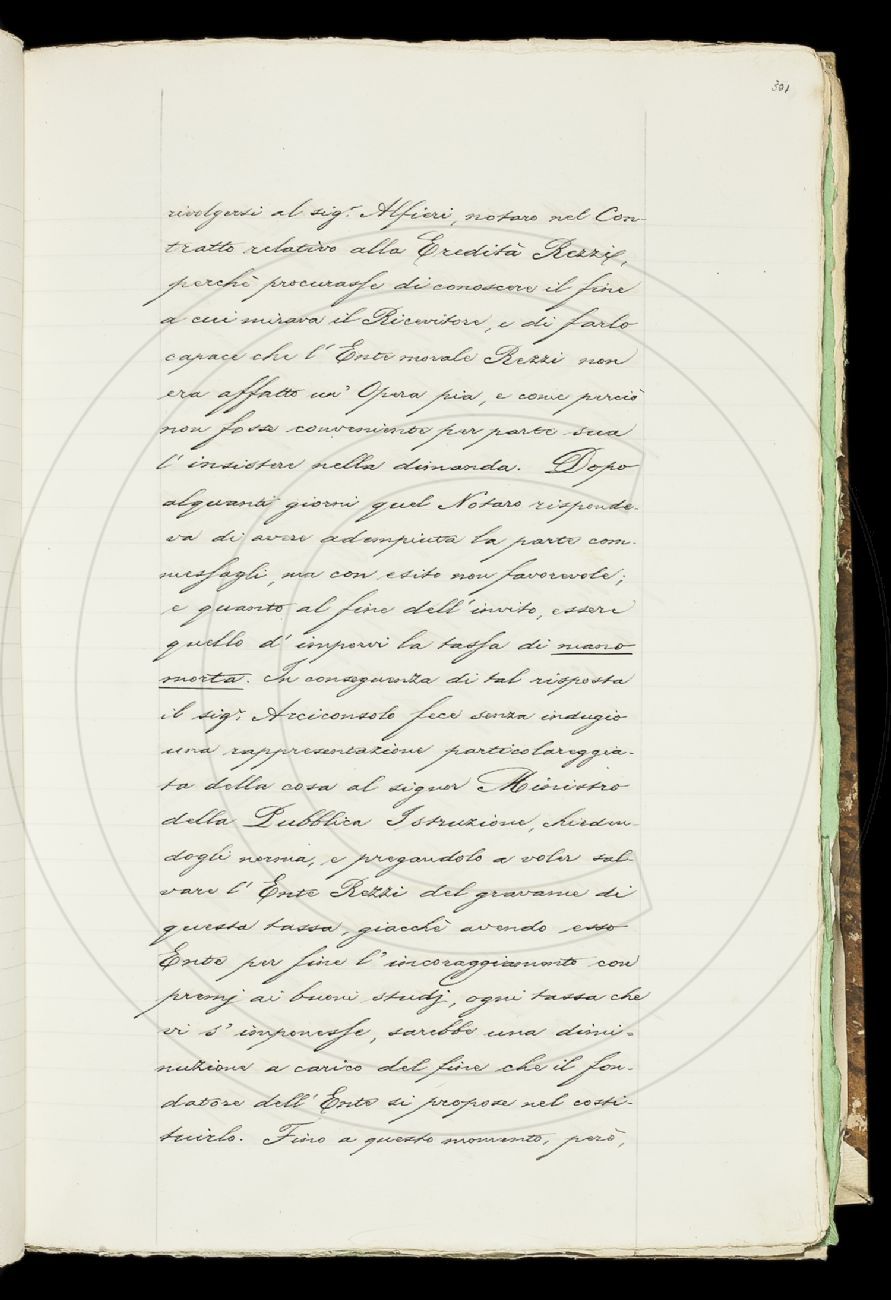 301
rivolgersi al sig.r Alfieri, notaro nel Con-
tratto relativo alla Eredità Rezzi,
perchè procurasse di conoscere il fine
a cui mirava il Ricevitore, e di farlo
capace che l' Ente morale Rezzi non
era affatto un' Opera pia, e come perciò
non fosse conveniente per parte sua
l' insistere nella dimanda. Dopo
alquanti giorni quel Notaro risponde-
va di avere adempiuta la parte com-
messagli, ma con esito non favorevole;
e quanto al fine dell' invito, essere
quello d' imporvi la tassa di mano
morta. In conseguenza di tal risposta
il sig.r Arciconsolo fece senza indugio
una rappresentazione particolareggia-
ta della cosa al signor Ministro
della Pubblica Istruzione, chieden-
dogli norma, e pregandolo a voler sal-
vare l' Ente Rezzi del gravame di
questa tassa, giacchè avendo esso
Ente per fine l' incoraggiamento con
premj ai buoni studj, ogni tassa che
vi s' imponesse, sarebbe una dimi-
nuzione a carico del fine che il fon-
datore dell' Ente si propose nel costi-
tuirlo. Fino a questo momento, però,